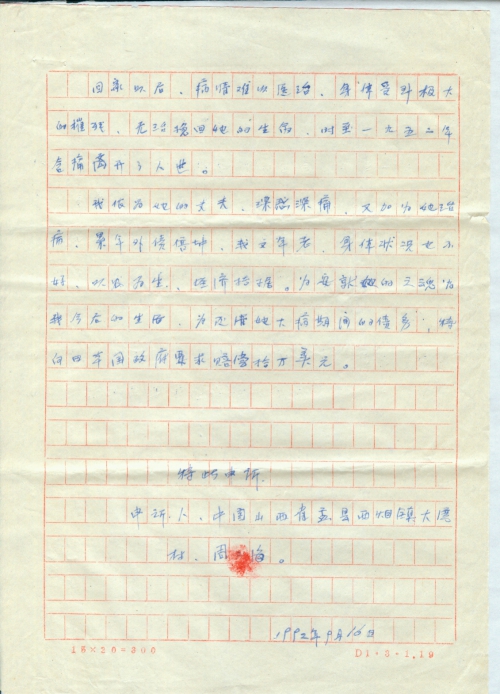 回家以后、病情难以医治、身体受到极大
的摧残、无法挽回她的生命、时至一九五二年
含痛离开了人世。
我作为她的丈夫、深感深痛、又加为她治
病、累年外债倍增、我又年老、身体状况也不
好、以农为生、经济拮据。为安慰她的灵魂为
我今后的生活、为还清她大病期间的债务、特
向日本国政府要求赔偿拾万美元。
特此申诉
申诉人、中国山西省盂县西烟镇大
村、周
1992年9月10日
15×20=300
D1·3·1.19